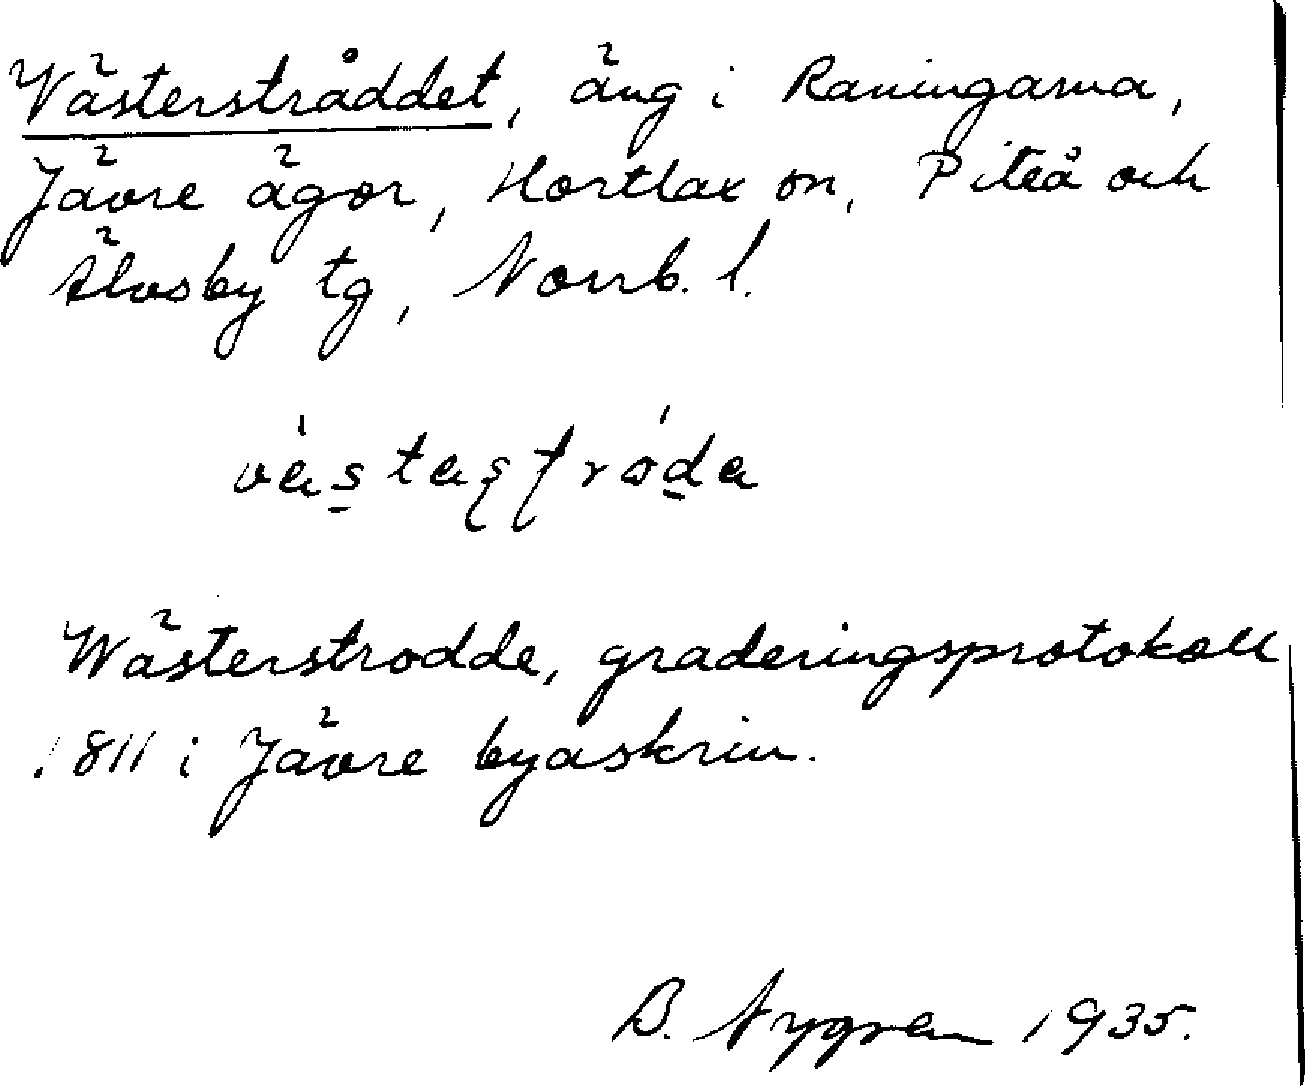 Västersträddet, äng i Raningarna,
Jävre ägor, Hortlax sn, Piteå och
Älvsby tg, Norrb. l.
Wästerstrodde, graderingsprotokoll
1811 i Jävre byaskrin.
B. Nygren 1935.